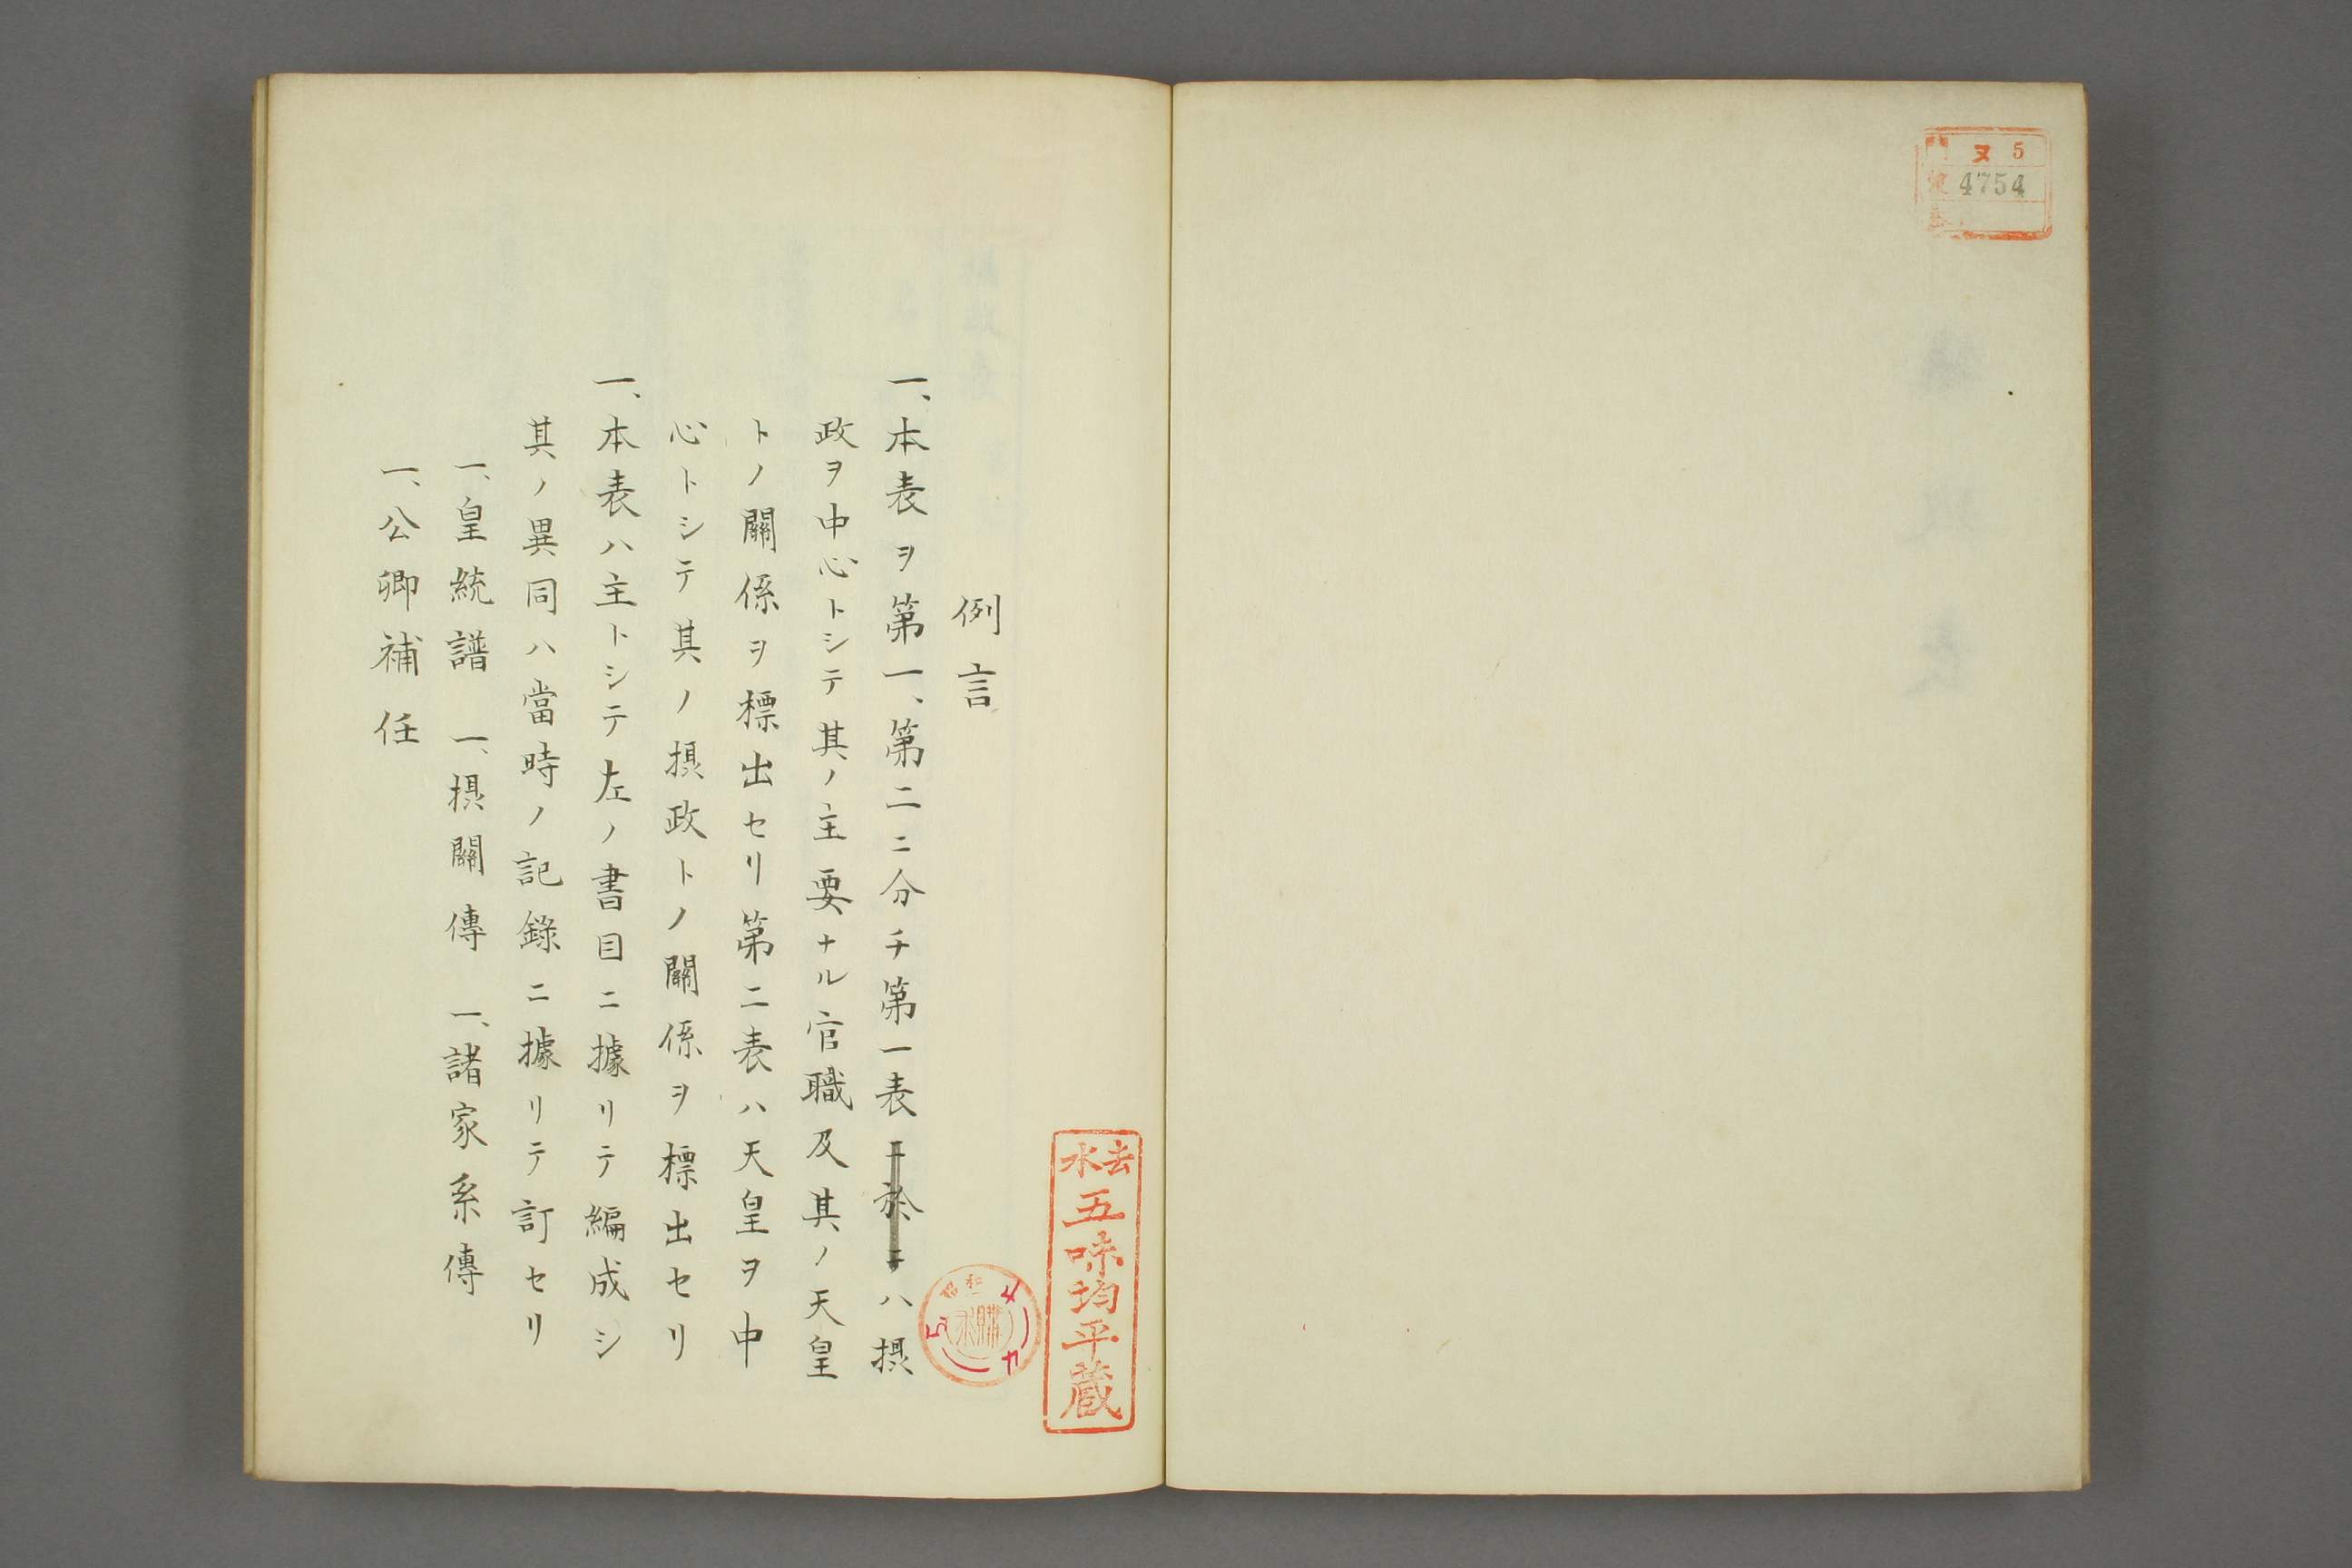 門 ヌ 5
號 4754
卷
例言
一、本表ヲ第一、第二ニ分チ第一表ニ於テハ摂
政ヲ中心トシテ其ノ主要ナル官職及其ノ天皇
トノ關係ヲ標出セリ第二表ハ天皇ヲ中
心トシテ其ノ摂政トノ關係ヲ標出セリ
一、本表ハ主トシテ左ノ書目ニ據リテ編成シ
其ノ異同ハ當時ノ記錄ニ據リテ訂セリ
一、皇統譜 一、摂關傳 一、諸家系傳
一、公卿補任
去水
五味均平蔵
昭和
購求